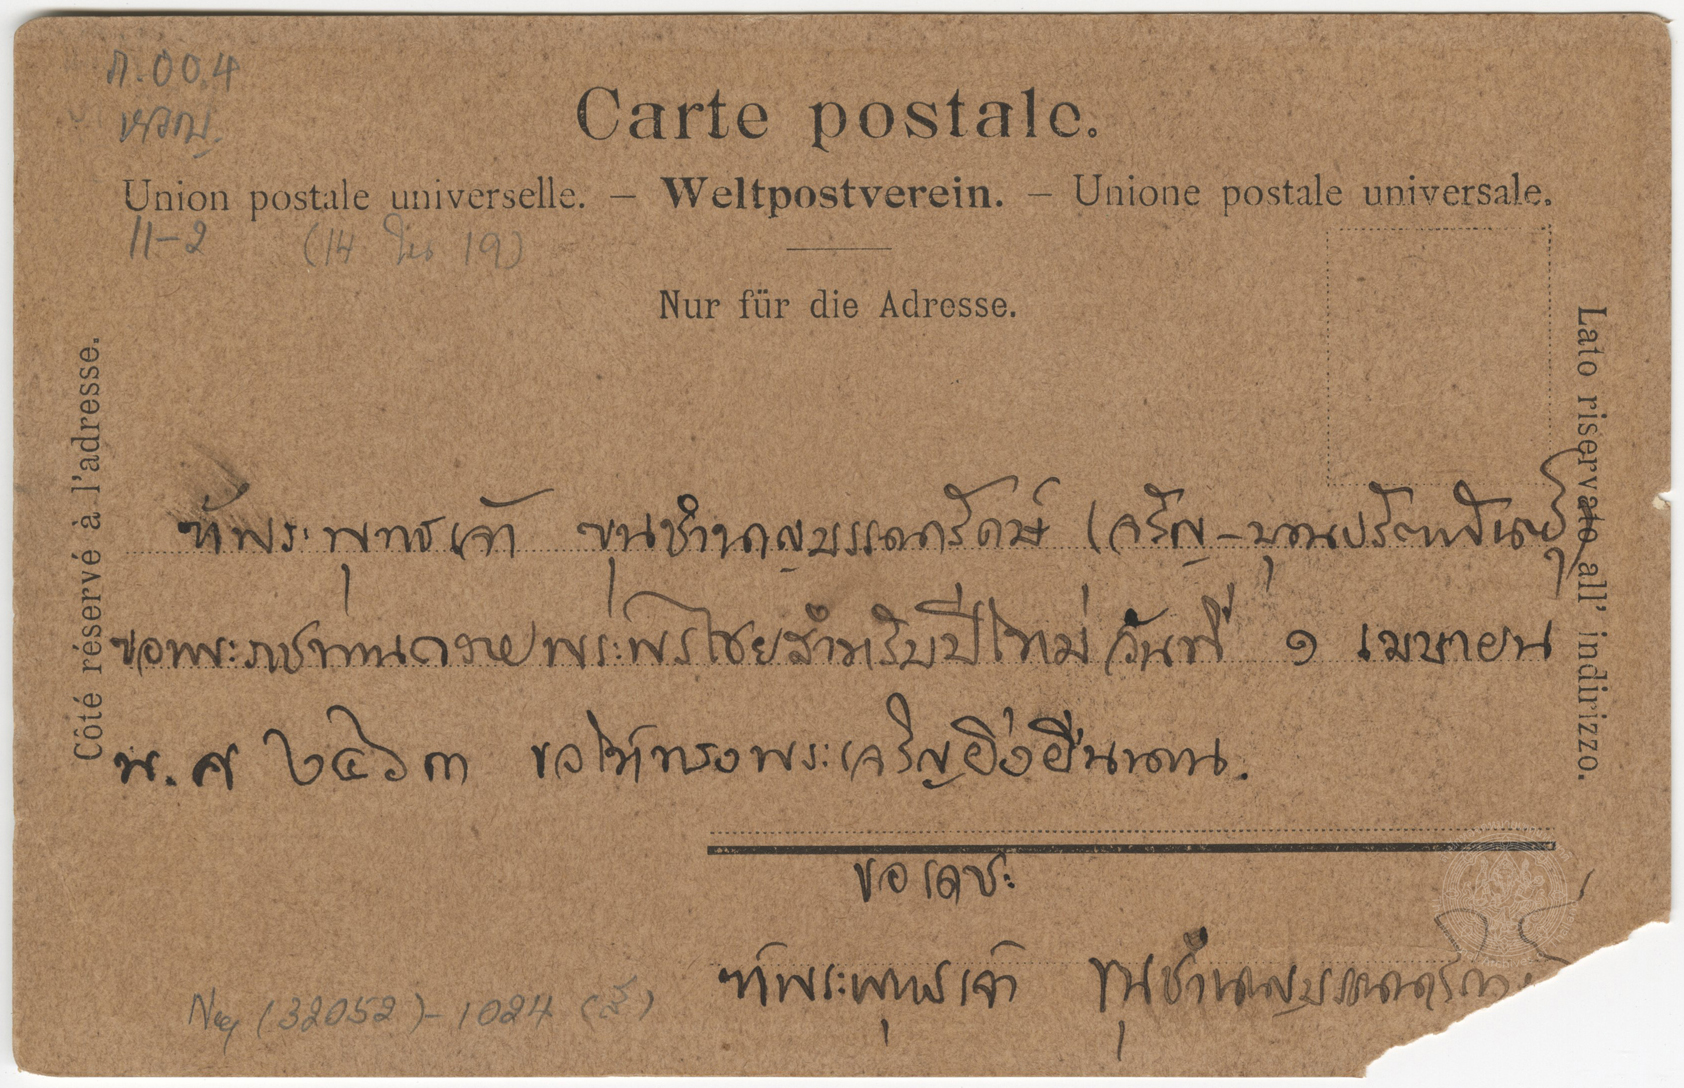 ภ.004
หวญ.
Carte postale.
Union postale universelle. — Weltpostverein. — Unione postale universale.
11-2 (14 19)
Nur für die Adresse.
Côté réservé à l'adresse.
Lato riservato all' indirizzo.
ข้าพระพุทธเจ้า ขุนชำนาญบรรณกรักษ์ (เจริญ
ขอพระราชทานถวายพระพรไชยสำหรับปีใหม่วันที่ ๑ เมษายน
พ.ศ ๒๔๖๓ ขอให้ทรงพระเจริญยิ่งยืนนาน.
ขอเดชะ
ข้าพระพุทธเจ้า ขุนชำนาญบรรณกรักษ์
Neg (32052)-1024 (ส)